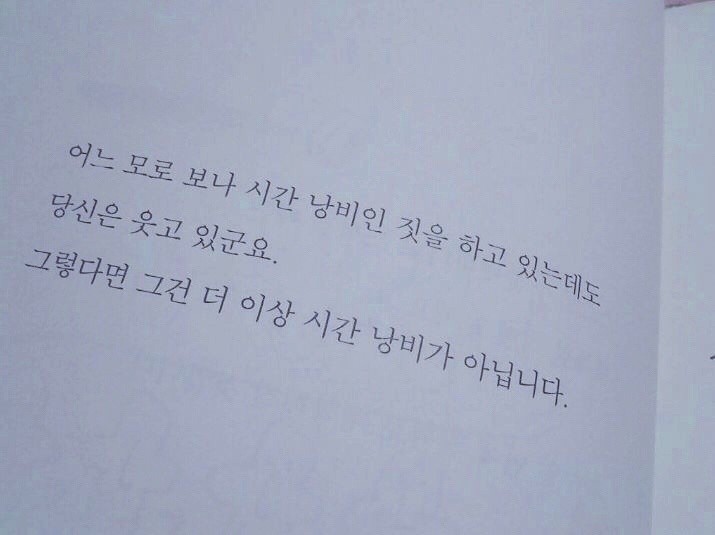 어느 모로 보나 시간 낭비인 짓을 하고 있는데도
당신은 웃고 있군요.
그렇다면 그건 더 이상 시간 낭비가 아닙니다.